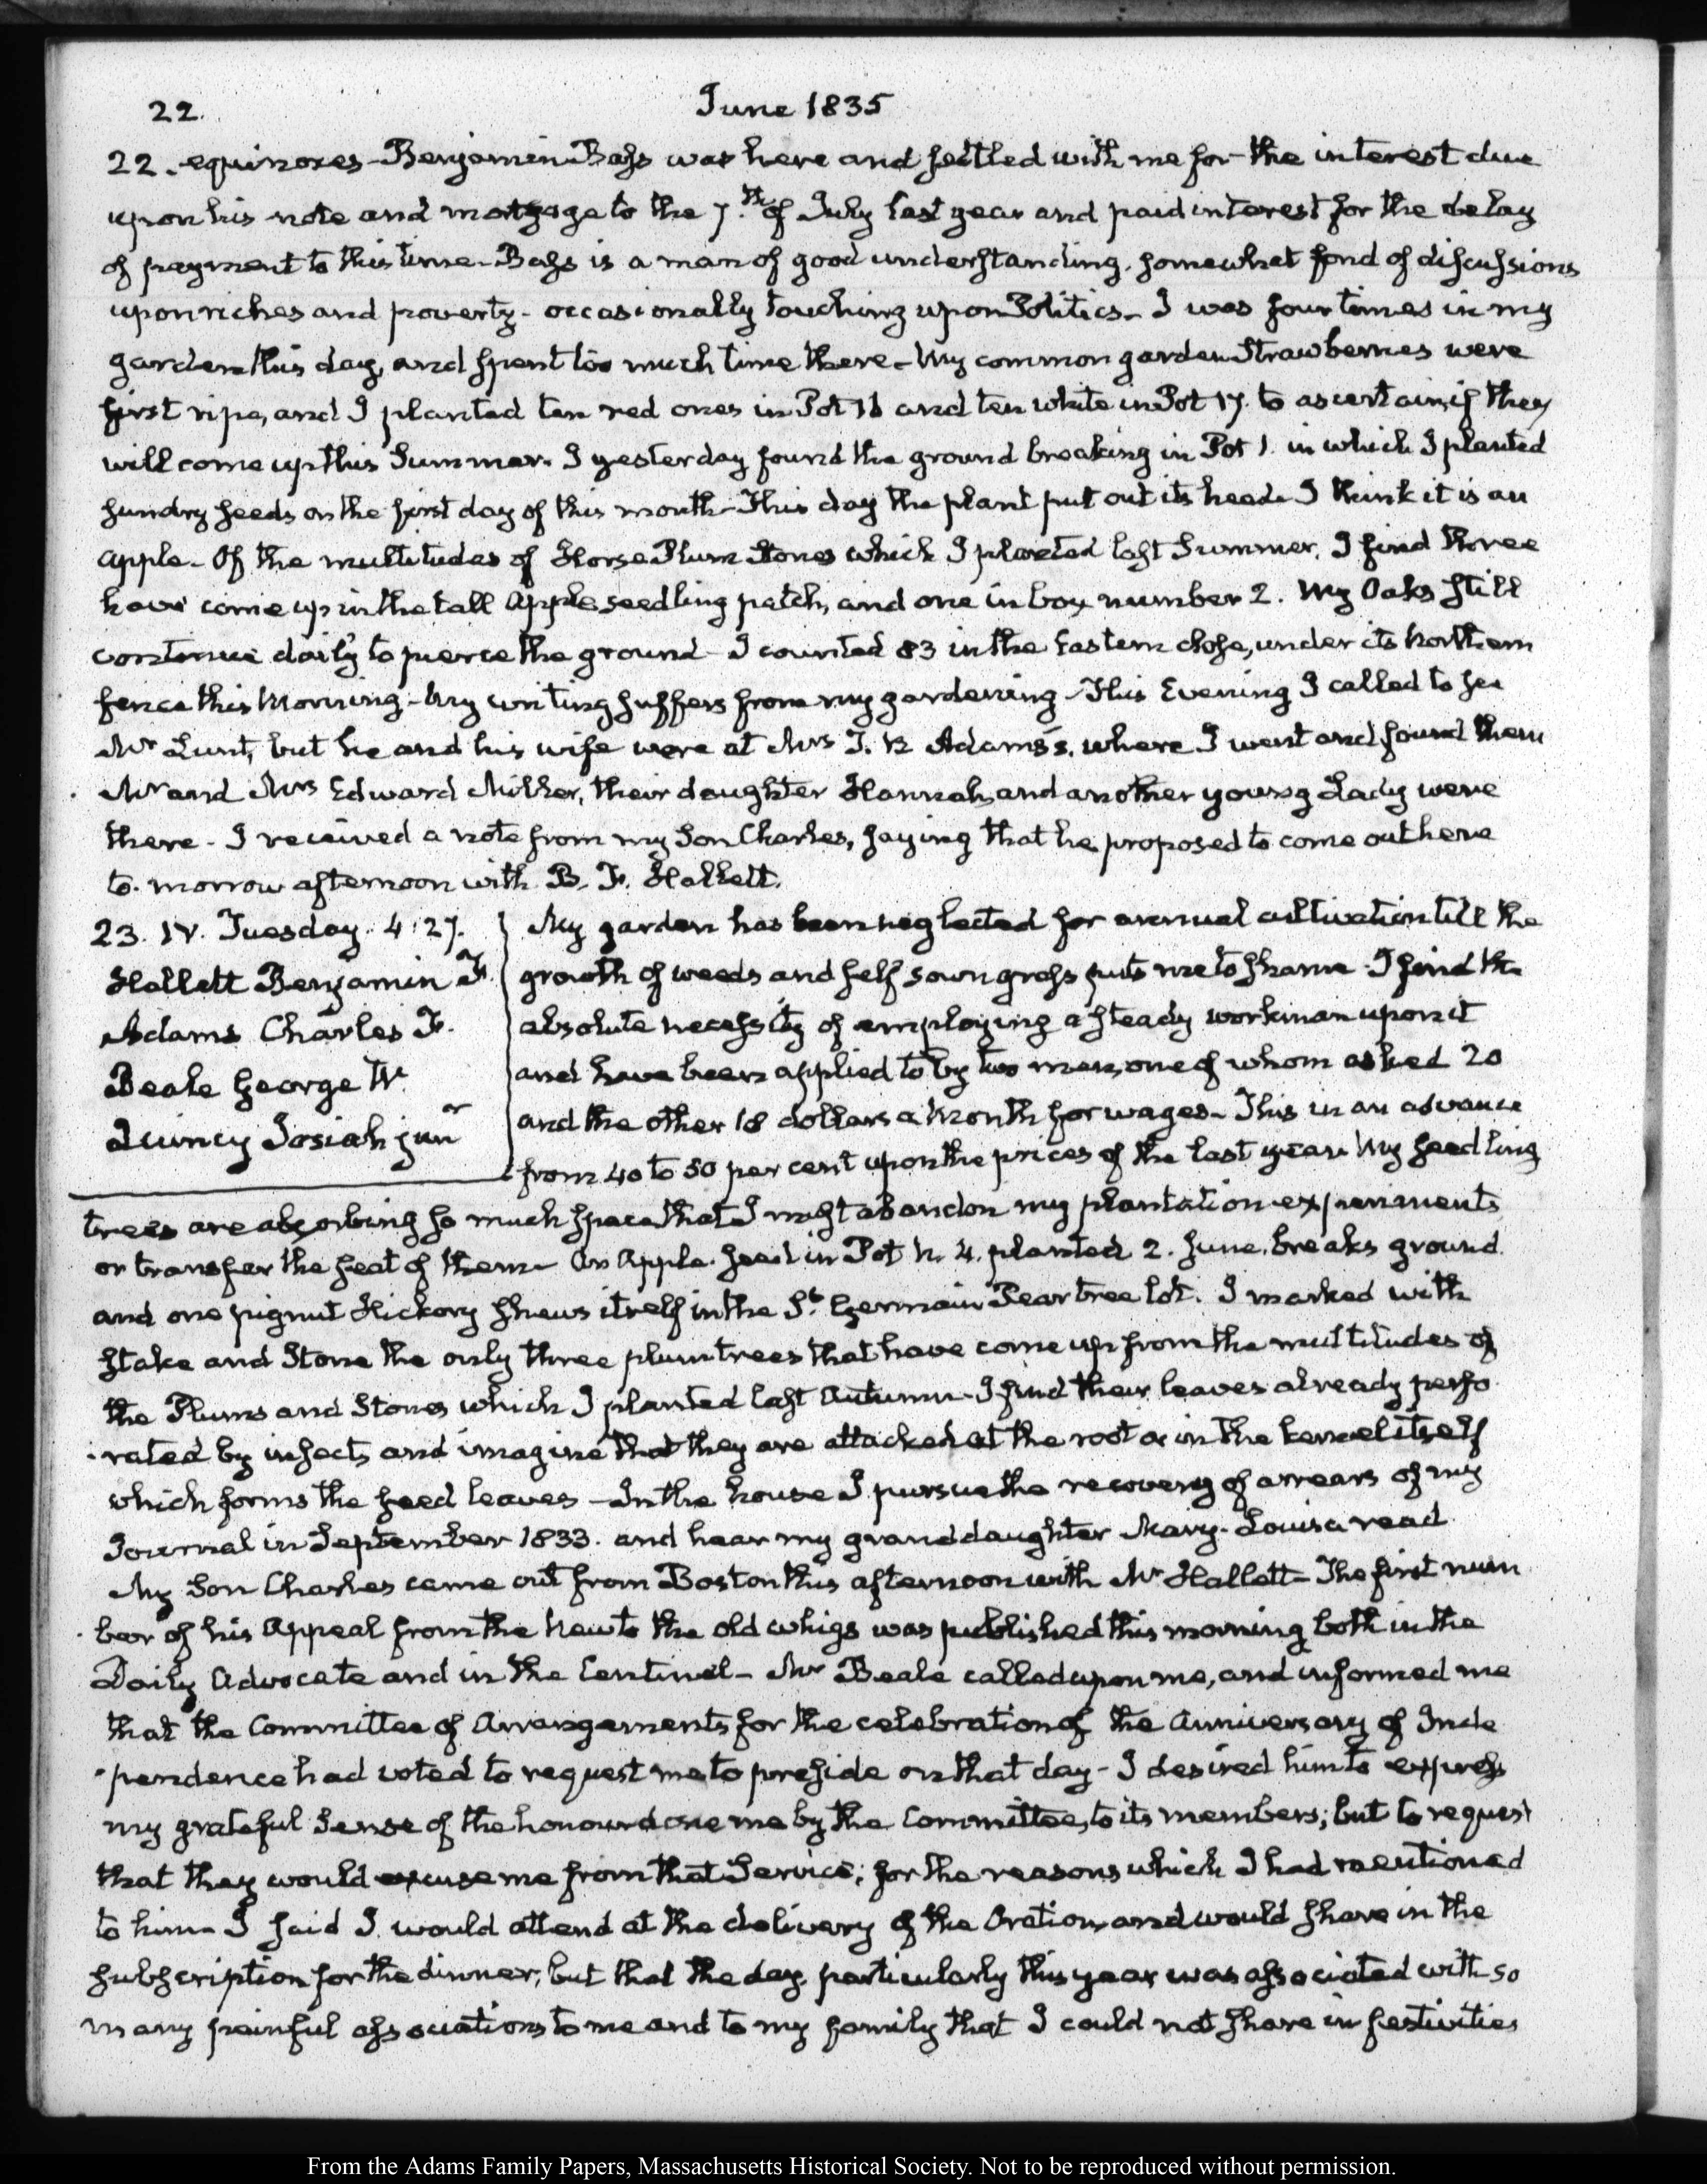 22.
June 1835
22. equinoxes - Benjamin Bass was here and settled with me for the interest due
upon his note and mortgage to the 7.th of July last year and paid interest for the delay
of payment to this time - Bass is a man of good understanding, somewhat fond of discussions
upon riches and poverty - occasionally touching upon Politics - I was four times in my
garden this day, and spent too much time there - My common garden Strawberries were
first ripe, and I planted ten red ones in Pot 16 and ten white in Pot 17. to ascertain, if they
will come up this Summer. I yesterday found the ground breaking in Pot 1. in which I planted
sundry seeds on the first day of this month - This day the plant put out its head. I think it is an
apple - Of the multitudes of Horse Plum Stones which I planted last Summer, I find three
have come up in the tall Apple seedling patch, and one in box number 2. My Oaks still
continue daily to pierce the ground - I counted 83 in the Eastern close, under its Northern
fence this Morning - My writing suffers from my gardening - This Evening I called to see
Mr Lunt, but he and his wife were at Mrs T. B Adams's, where I went and found them
Mr and Mrs Edward Miller, their daughter Hannah, and another young Lady were
there - I received a note from my Son Charles, saying that he proposed to come out here
to-morrow afternoon with B. F. Hallett.
23. IV. Tuesday. 4:27.
Hallett Benjamin F.
Adams Charles F.
Beale George W.
Quincy Josiah junr
My garden has been neglected for annual cultivation till the
growth of weeds and self sown grass puts me to shame. I find the
absolute necessity of employing a steady workman upon it
and have been applied to by two men, one of whom asked 20
and the other 18 dollars a Month for wages - This is an advance
from 40 to 50 per cent upon the prices of the last year. My seedling
trees are absorbing so much space that I must abandon my plantation experiments
or transfer the seat of them - An Apple seed in Pot N. 4. planted 2. June, breaks ground
and one pignut Hickory shews itself in the St. Germain Pear tree lot. I marked with
stake and Stone the only three plum trees that have come up from the multitudes of
the Plums and Stones which I planted last Autumn - I find their leaves already perfo
rated by insects, and imagine that they are attacked at the root or in the kernel itself
which forms the seed leaves - In the house I pursue the recovery of arrears of my
Journal in September 1833. and hear my granddaughter Mary-Louisa read
My Son Charles came out from Boston this afternoon with Mr Hallett - The first num
ber of his Appeal from the New to the old whigs was published this morning both in the
Daily Advocate and in the Centinel - Mr Beale called upon me, and informed me
that the Committee of Arrangements for the celebration of the Anniversary of Inde
pendence had voted to request me to preside on that day - I desired him to express
my grateful Sense of the honour done me by the Committee, to its members; but to request
that they would excuse me from that Service; for the reasons which I had mentioned
to him - I said I would attend at the delivery of the Oration, and would share in the
subscription for the dinner; but that the day, particularly this year was associated with so
many painful associations to me and to my family that I could not share in festivities
From the Adams Family Papers, Massachusetts Historical Society. Not to be reproduced without permission.